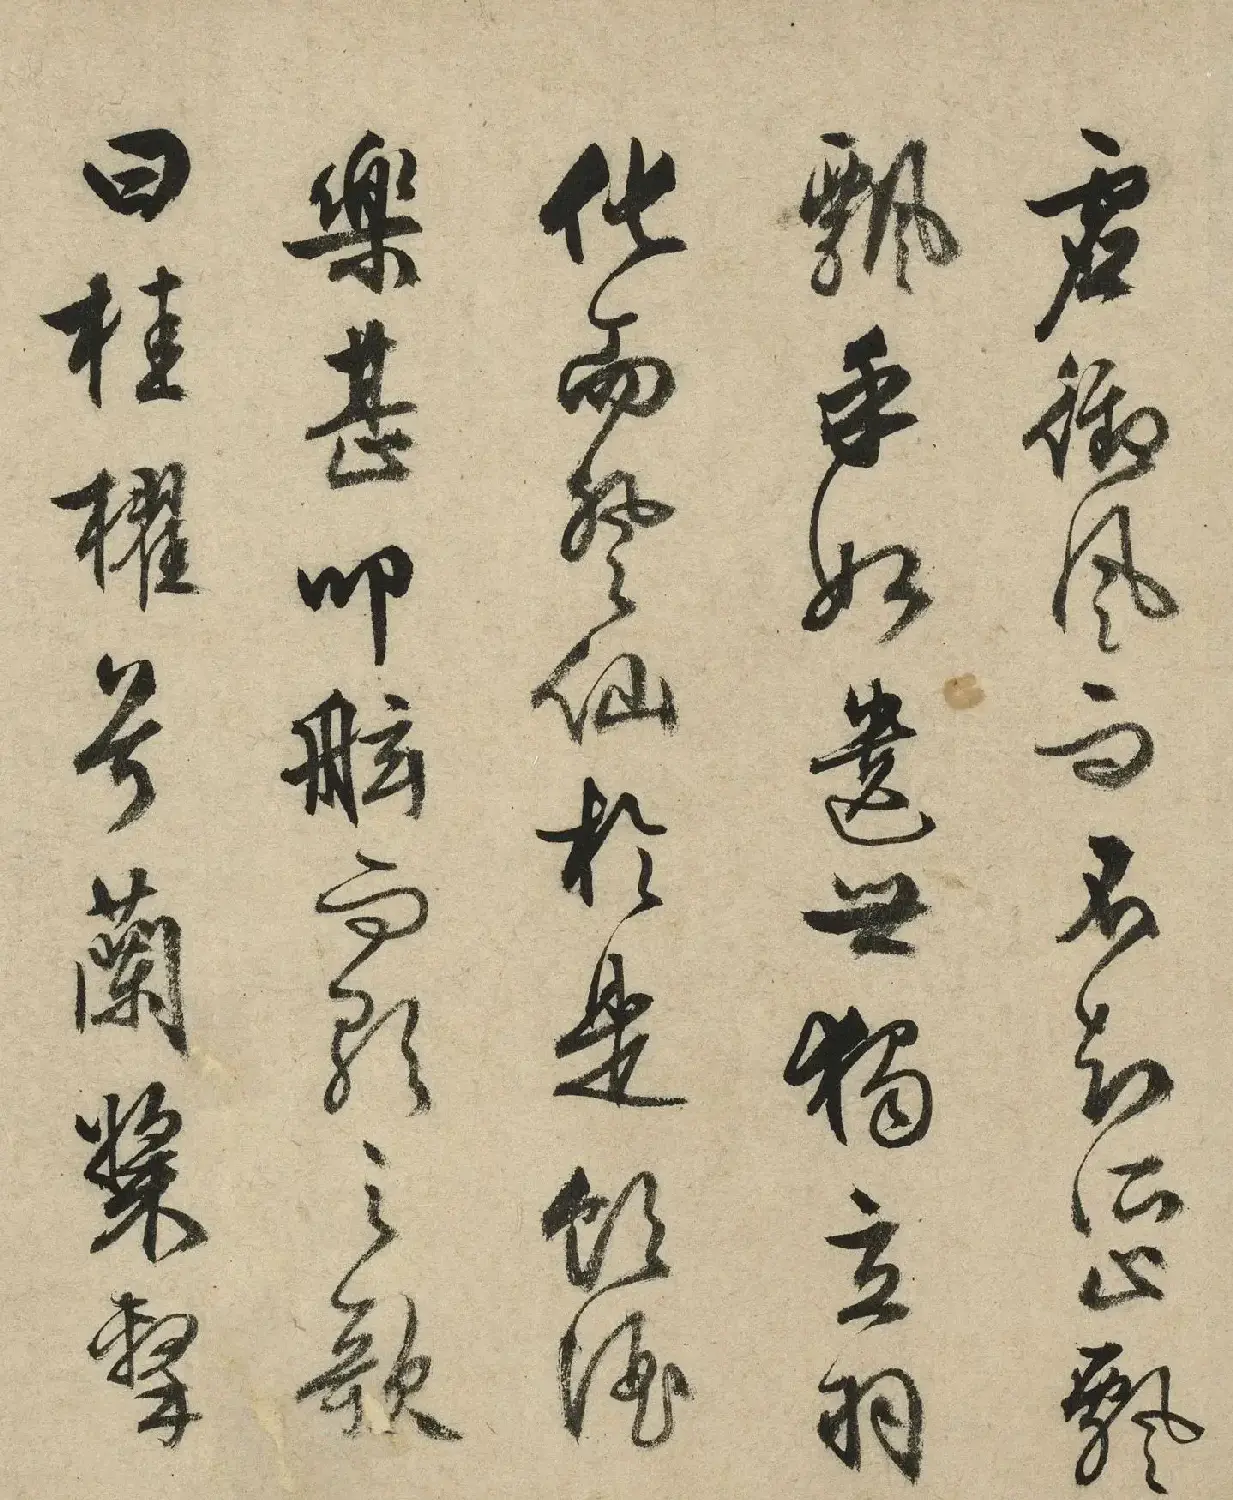 虛御風而不知所止飄
飄乎如遺世獨立羽
化而登仙於是飲酒
樂甚叩舷而歌之歌
曰桂櫂兮蘭槳擊